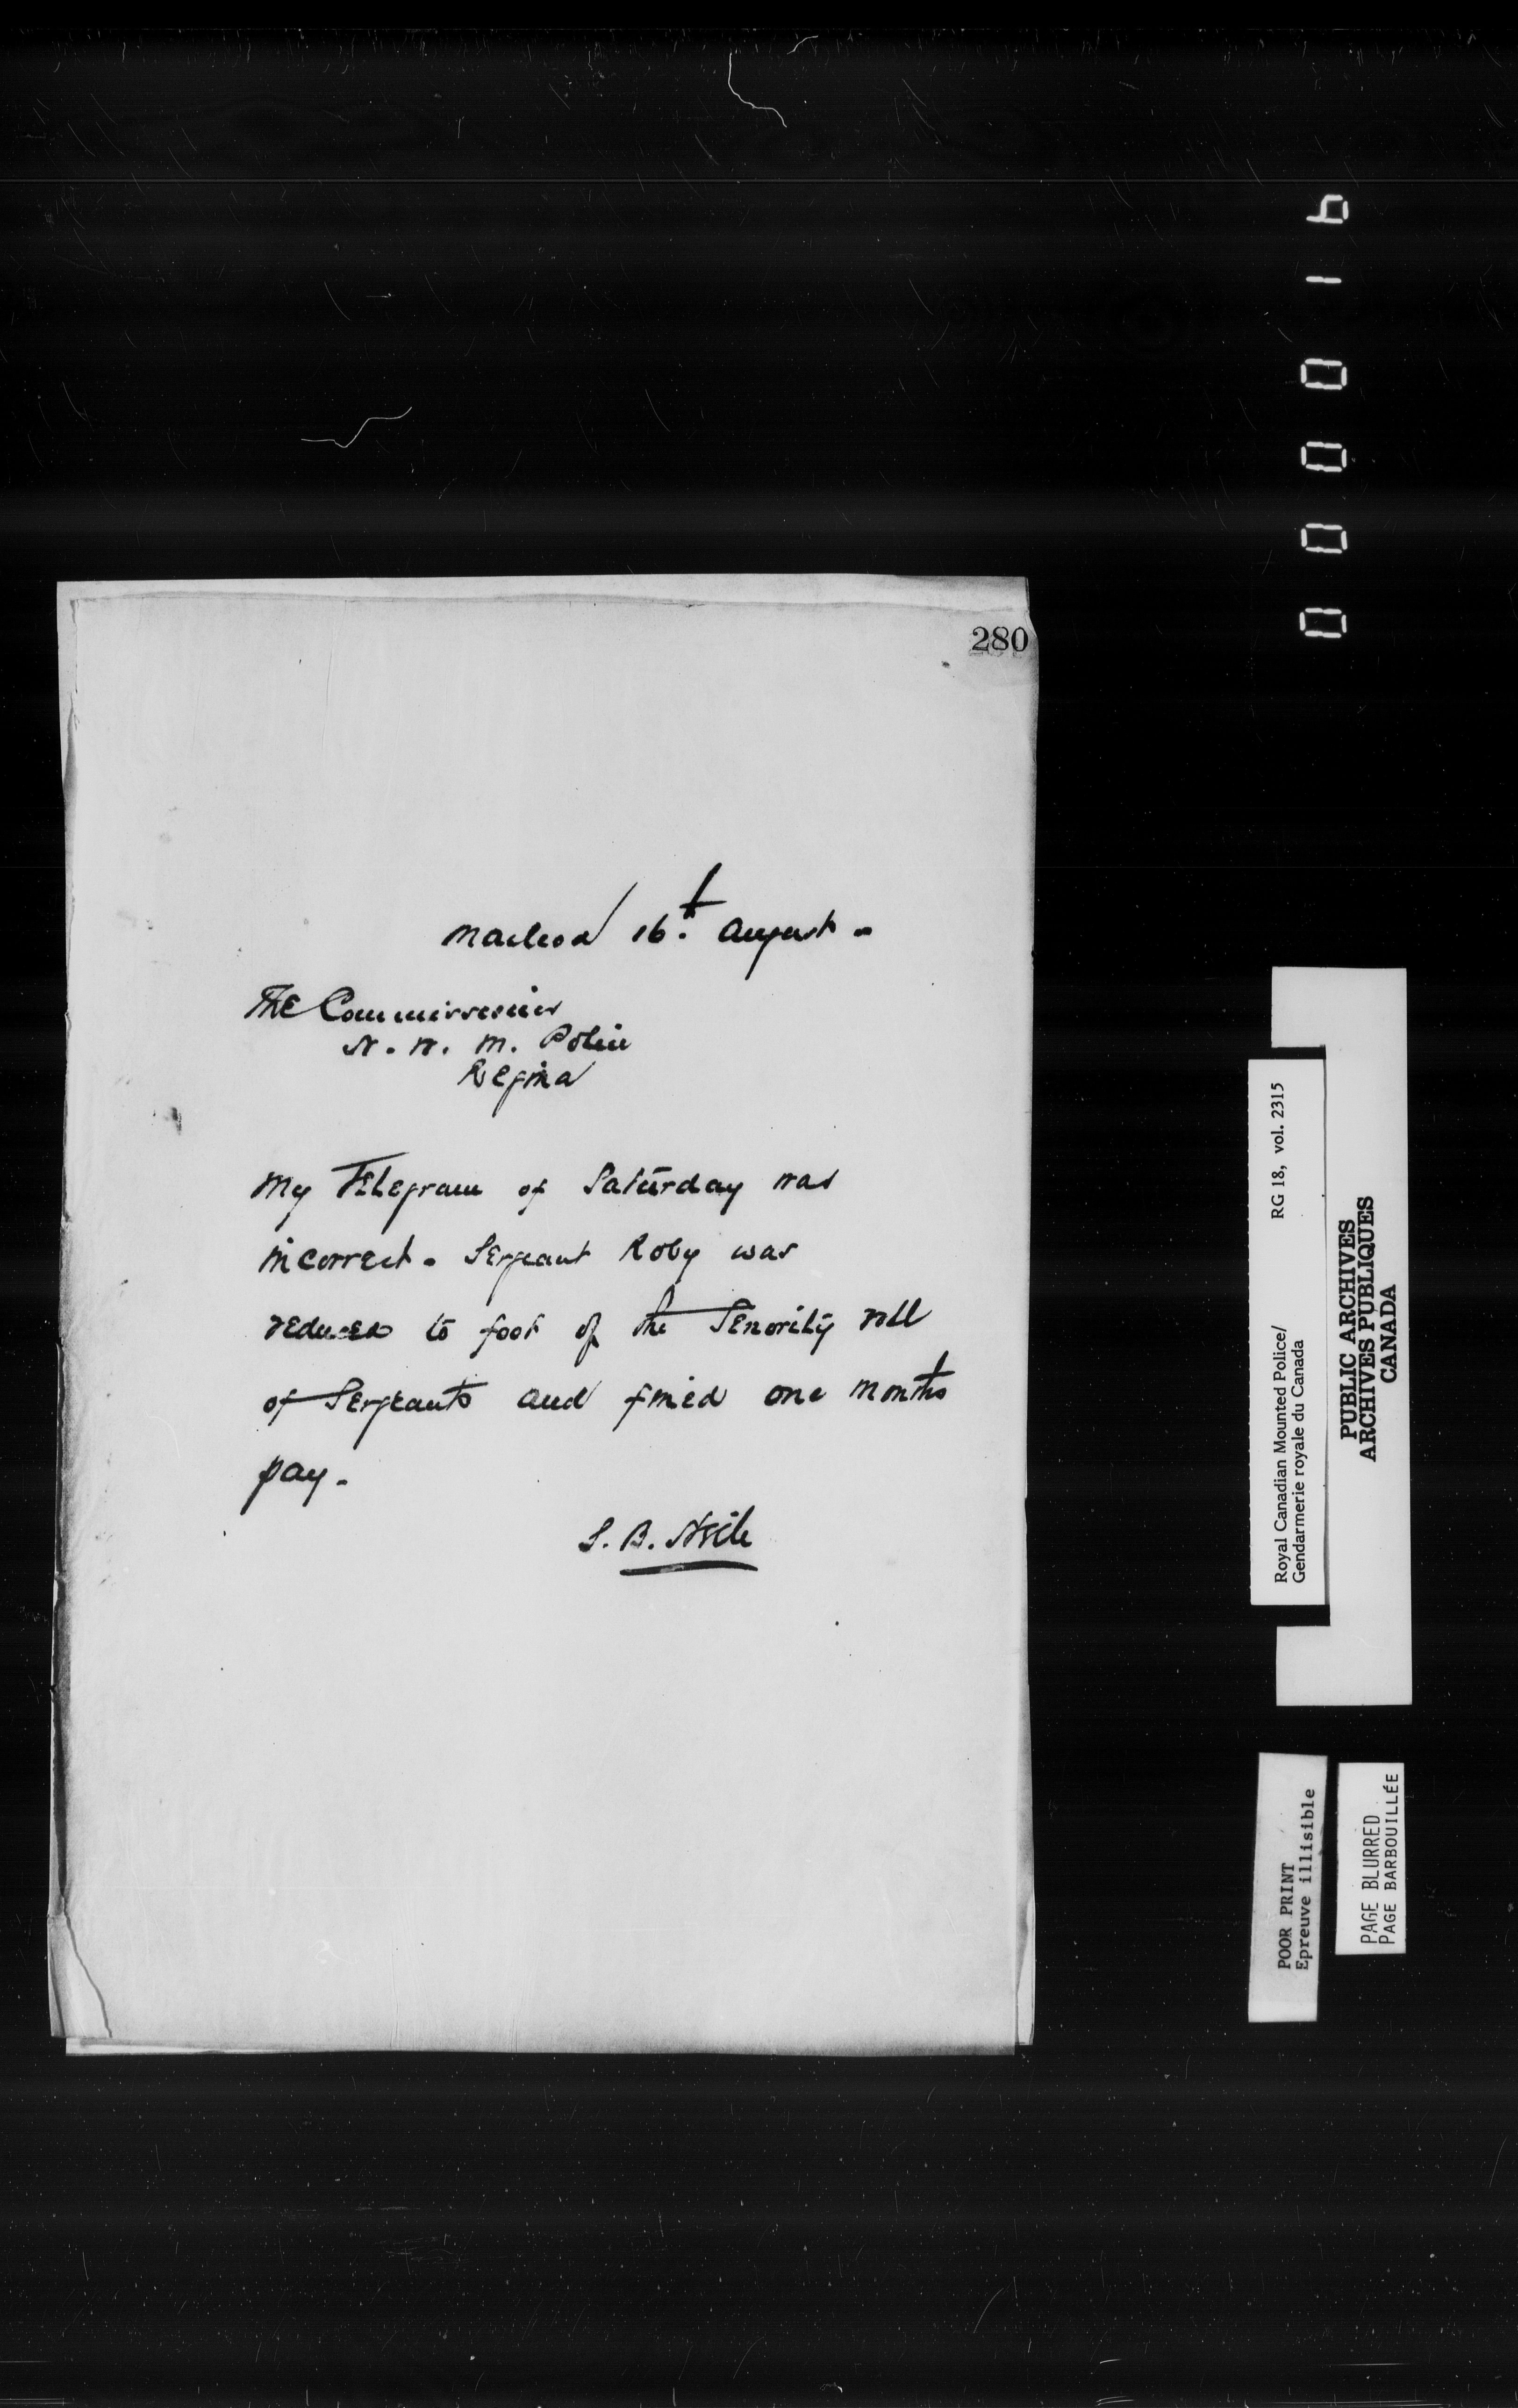 280
Macleod 16th August -
The Commissioner
N. W. M. Police
Regina
My Telegram of Saturday was
incorrect. Sergeant Roby was
reduced to foot of the Senority roll
of Sergeants and fined one months
pay.
S. B. Steele
000016
Royal Canadian Mounted Police/ RG 18, vol. 2315
Gendarmerie royale du Canada
PUBLIC ARCHIVES
ARCHIVES PUBLIQUES
CANADA
POOR PRINT
Epreuve illisible
PAGE BLURRED
PAGE BARBOUILLÉE